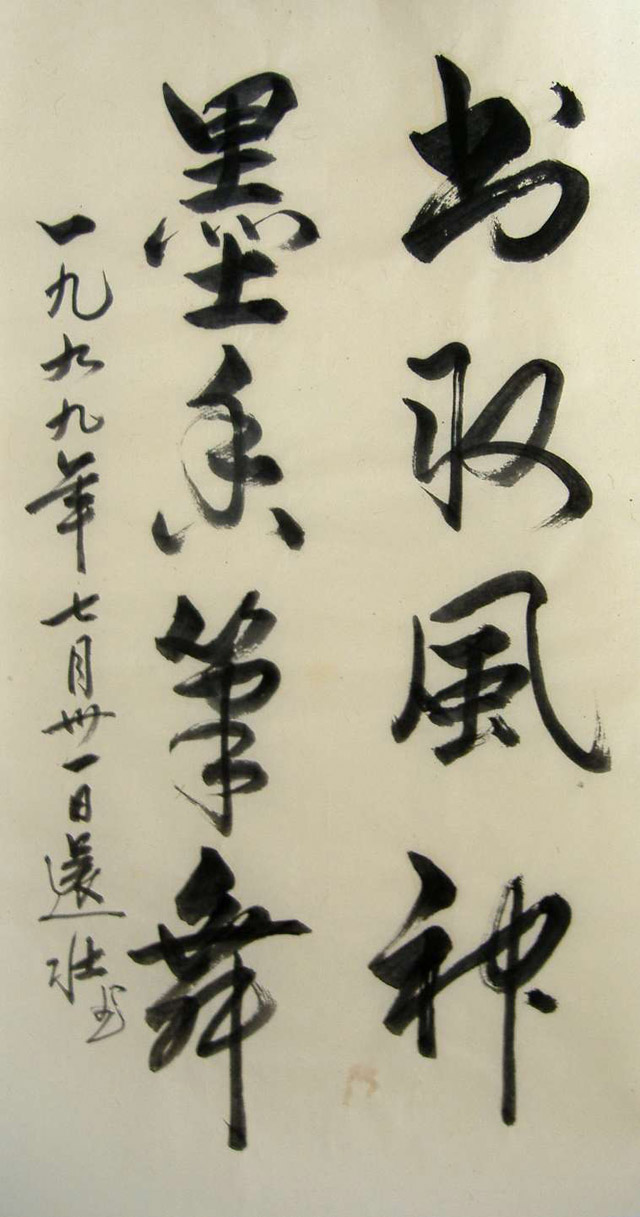 书取風神
墨香筆舞
一九九九年七月卅一日還壮书